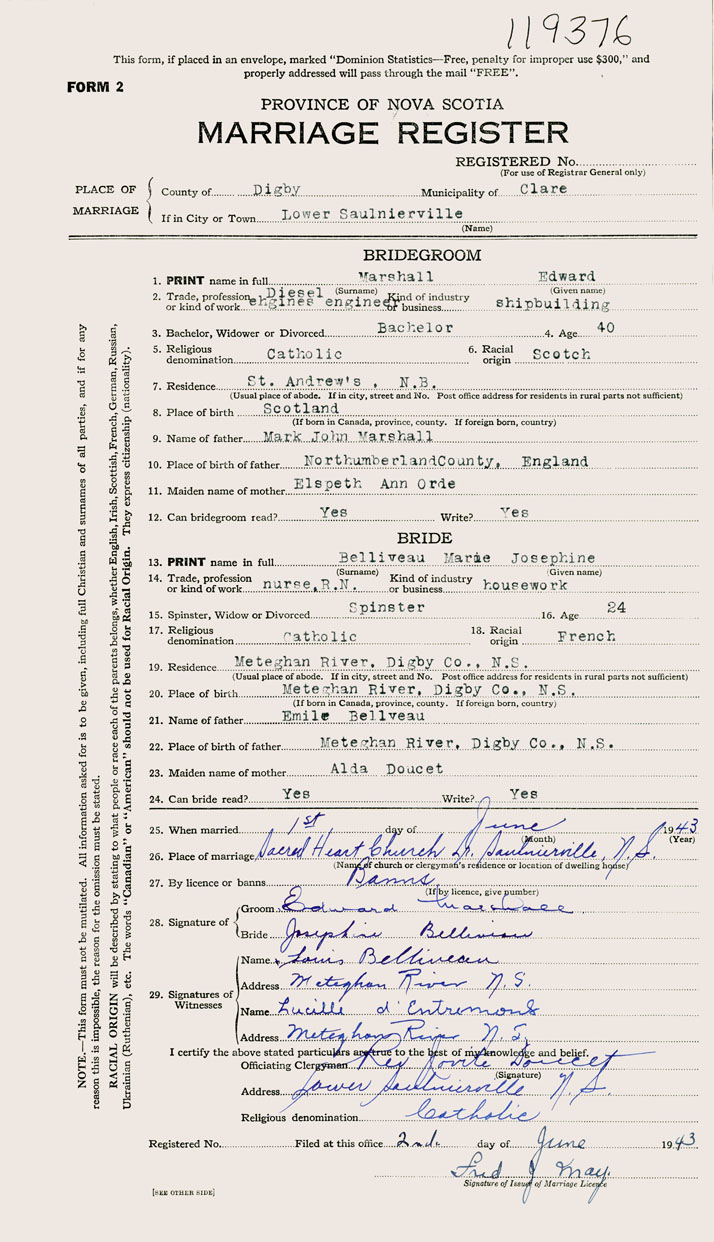 119376
This form, if placed in an envelope, marked "Dominion Statistics—Free, penalty for improper use $300," and
properly addressed will pass through the mail "FREE".
FORM 2
PROVINCE OF NOVA SCOTIA
MARRIAGE REGISTER
REGISTERED No.
(For use of Registrar General only)
PLACE OF MARRIAGE
County of Digby Municipality of Clare
If in City or Town Lower Saulnierville
(Name)
BRIDEGROOM
1. PRINT name in full Marshall Edward
(Surname) (Given name)
2. Trade, profession or kind of work Diesel engines engineer Kind of industry or business shipbuilding
3. Bachelor, Widower or Divorced Bachelor 4. Age 40
5. Religious denomination Catholic 6. Racial origin Scotch
7. Residence St. Andrew's , N.B.
(Usual place of abode. If in city, street and No. Post office address for residents in rural parts not sufficient)
8. Place of birth Scotland
(If born in Canada, province, county. If foreign born, country)
9. Name of father Mark John Marshall
10. Place of birth of father NorthumberlandCounty, England
11. Maiden name of mother Elspeth Ann Orde
12. Can bridegroom read? Yes Write? Yes
BRIDE
13. PRINT name in full Belliveau Marie Josephine
(Surname) (Given name)
14. Trade, profession or kind of work nurse,R.N. Kind of industry or business housework
15. Spinster, Widow or Divorced Spinster 16. Age 24
17. Religious denomination Catholic 18. Racial origin French
19. Residence Meteghan River, Digby Co., N.S.
(Usual place of abode. If in city, street and No. Post office address for residents in rural parts not sufficient)
20. Place of birth Meteghan River, Digby Co., N.S.
(If born in Canada, province, county. If foreign born, country)
21. Name of father Emile Bellveau
22. Place of birth of father Meteghan River, Digby Co., N.S.
23. Maiden name of mother Alda Doucet
24. Can bride read? Yes Write? Yes
25. When married 1st day of June 1943
(Month) (Year)
26. Place of marriage Sacred Heart Church Lr. Saulnierville, N.S.
(Name of church or clergyman's residence or location of dwelling house)
27. By licence or banns Banns
(If by licence, give number)
28. Signature of
Groom Edward Marshall
Bride Josephine Belliveau
29. Signatures of Witnesses
Name Louis Belliveau
Address Meteghan River N.S.
Name Lucille d'Entremont
Address Meteghan River N.S.
I certify the above stated particulars are true to the best of my knowledge and belief.
Officiating Clergyman Rev Jovite Doucet
(Signature)
Address Lower Saulnierville N.S.
Religious denomination Catholic
Registered No. Filed at this office 2nd. day of June 1943
Fred J May
Signature of Issuer of Marriage Licence
[SEE OTHER SIDE]
NOTE.—This form must not be mutilated. All information asked for is to be given, including full Christian and surnames of all parties, and if for any
reason this is impossible, the reason for the omission must be stated.
RACIAL ORIGIN will be described by stating to what people or race each of the parents belongs, whether English, Irish, Scottish, French, German, Russian,
Ukrainian (Ruthenian), etc. The words "Canadian" or "American" should not be used for Racial Origin. They express citizenship (nationality).